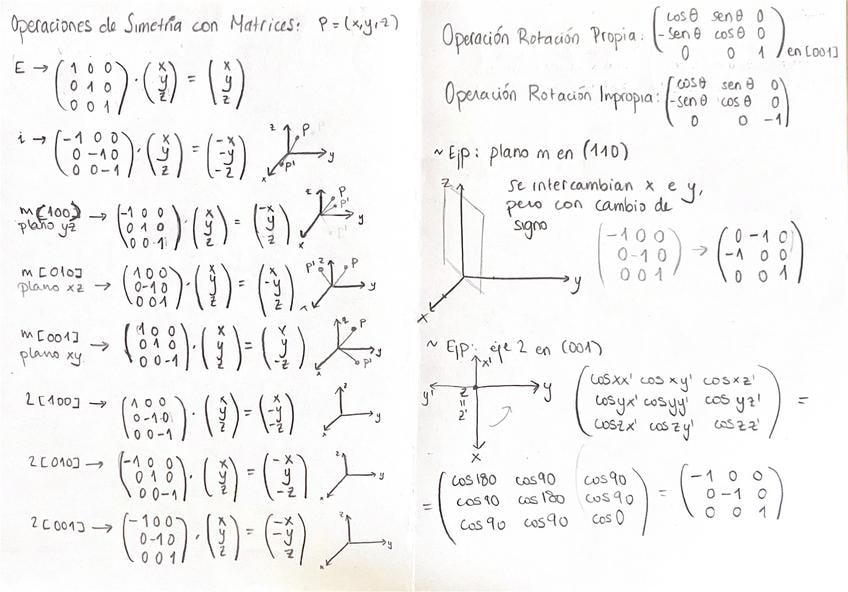 Operaciones de Simetría con Matrices: P = (x,y,z)
E → (1 0 0 / 0 1 0 / 0 0 1) · (x / y / z) = (x / y / z)
i → (-1 0 0 / 0 -1 0 / 0 0 -1) · (x / y / z) = (-x / -y / -z) z P y x P'
m[100] plano yz → (-1 0 0 / 0 1 0 / 0 0 1) · (x / y / z) = (-x / y / z) z P P' y x
m[010] plano xz → (1 0 0 / 0 -1 0 / 0 0 1) · (x / y / z) = (x / -y / z) P' z P y x
m[001] plano xy → (1 0 0 / 0 1 0 / 0 0 -1) · (x / y / z) = (x / y / -z) z P y x P'
2[100] → (1 0 0 / 0 -1 0 / 0 0 -1) · (x / y / z) = (x / -y / -z) z y x
2[010] → (-1 0 0 / 0 1 0 / 0 0 -1) · (x / y / z) = (-x / y / -z) z y x
2[001] → (-1 0 0 / 0 -1 0 / 0 0 1) · (x / y / z) = (-x / -y / z) z y x
Operación Rotación Propia: (cosθ senθ 0 / -senθ cosθ 0 / 0 0 1) en [001]
Operación Rotación Impropia: (cosθ senθ 0 / -senθ cosθ 0 / 0 0 -1)
~ Ejp: plano m en (110)
z y x
se intercambian x e y,
pero con cambio de
signo
(-1 0 0 / 0 -1 0 / 0 0 1) → (0 -1 0 / -1 0 0 / 0 0 1)
~ Ejp: eje 2 en (001)
x' y' z = z' y x
(cosxx' cosxy' cosxz' / cosyx' cosyy' cosyz' / coszx' coszy' coszz') =
= (cos180 cos90 cos90 / cos90 cos180 cos90 / cos90 cos90 cos0) = (-1 0 0 / 0 -1 0 / 0 0 1)